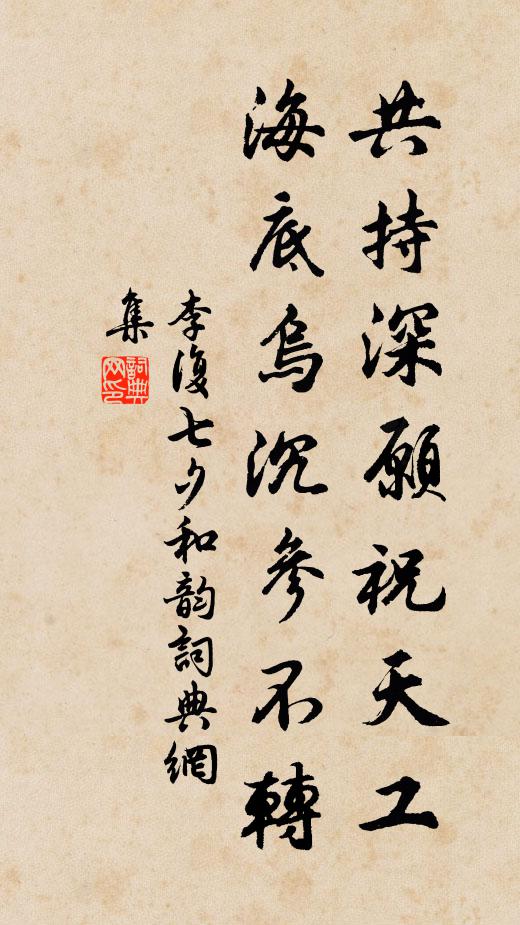 共持深願祝天工
海底烏沉參不轉
李復七夕和韵詞典網
集
詞典
网印